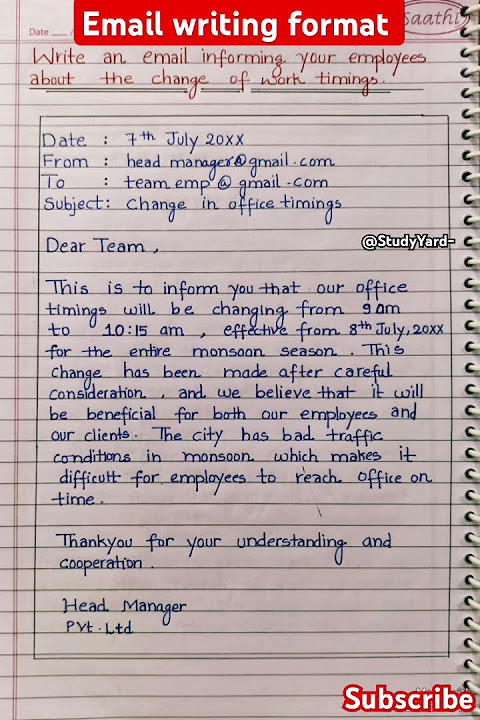 Email writing format
Saathi
Date
Write an email informing your employees
about the change of work timings.
Date : 7th July 20XX
From : head manager@gmail.com
To : team emp @ gmail.com
Subject: Change in office timings
Dear Team ,
@StudyYard-
This is to inform you that our office
timings will be changing from 9 am
to 10:15 am , effective from 8th July, 20XX
for the entire monsoon season. This
change has been made after careful
consideration , and we believe that it will
be beneficial for both our employees and
our clients. The city has bad traffic
conditions in monsoon which makes it
difficult for employees to reach office on
time.
Thankyou for your understanding and
cooperation.
Head Manager
Pvt. Ltd
Subscribe